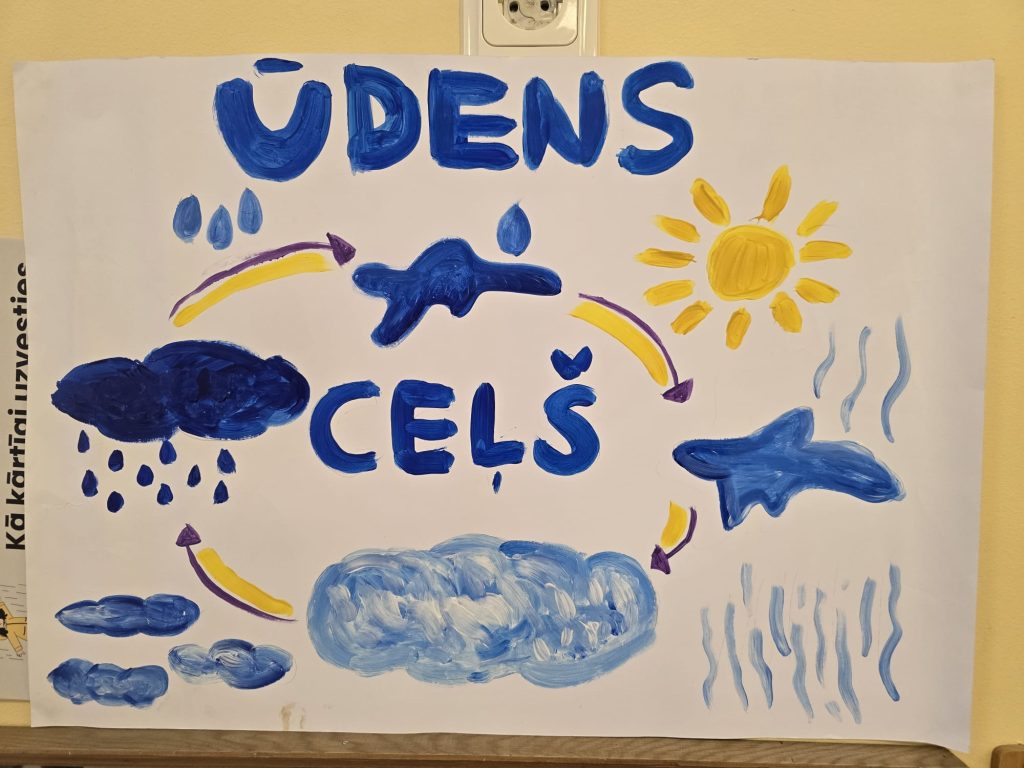 ŪDENS
CEĻŠ
Kā kārtīgi uzvesties